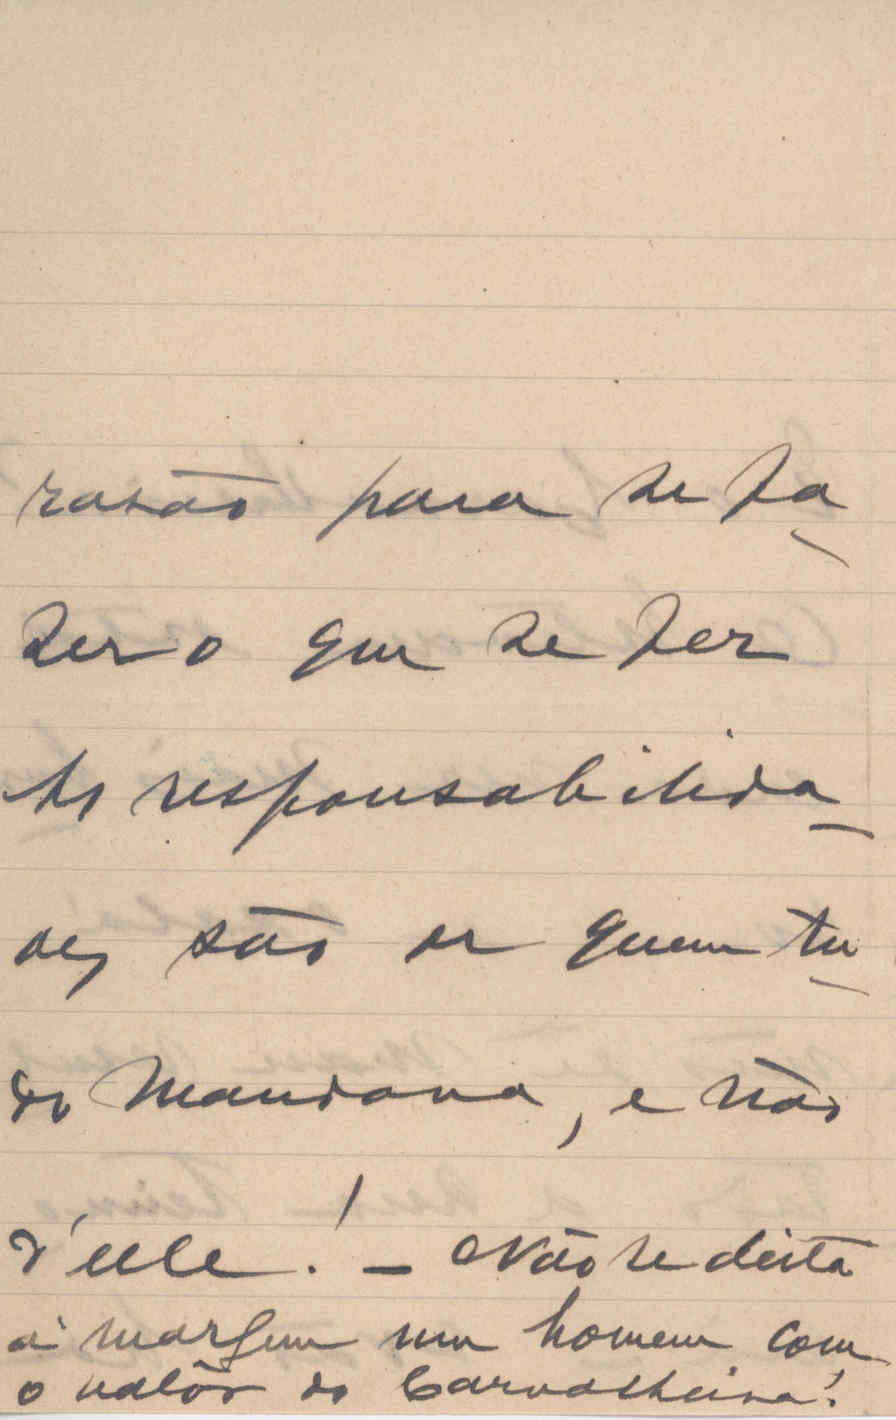 rasão para se fa-
zer o que se fez
As responsabilida-
des são de quem tu-
do mandava, e não
d'elle! — Não se deita
á margem um homem com
o valôr do Carvalheira!